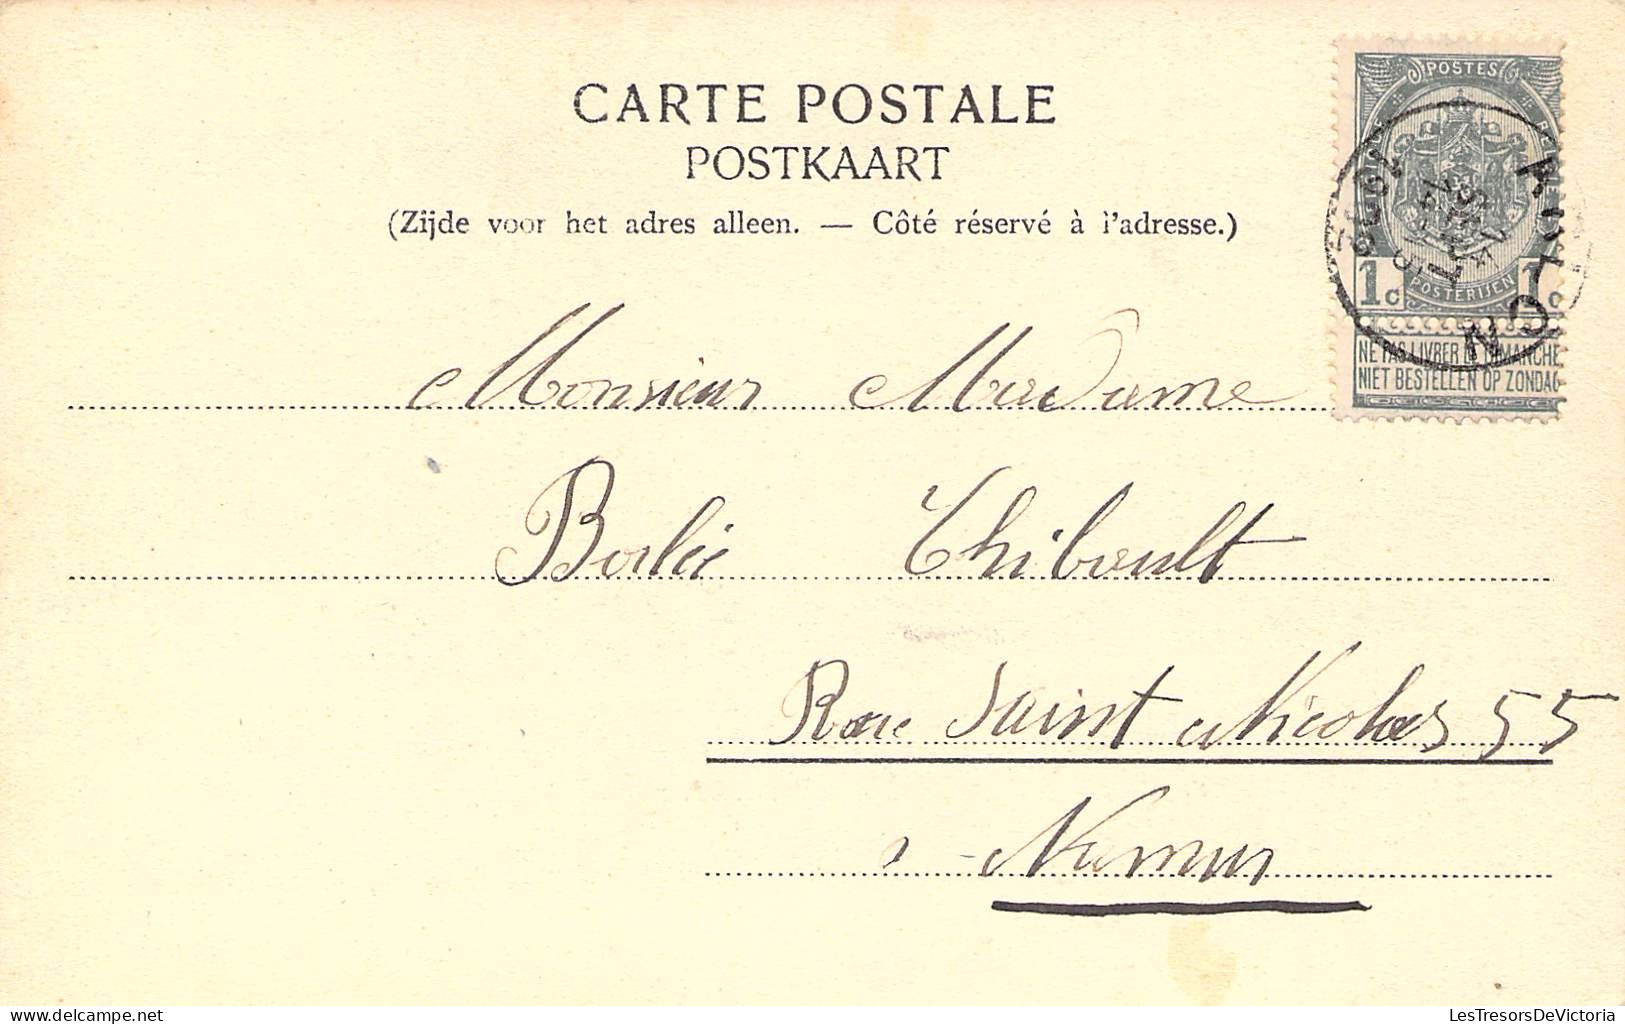 CARTE POSTALE
POSTKAART
(Zijde voor het adres alleen. — Côté réservé à l'adresse.)
POSTES
1c 1c
POSTERIJEN
NE PAS LIVRER LE DIMANCHE
NIET BESTELLEN OP ZONDAG
Monsieur Madame
Thibault
Rue Saint Nicolas 55
Namur
delcampe.net
LesTresorsDeVictoria